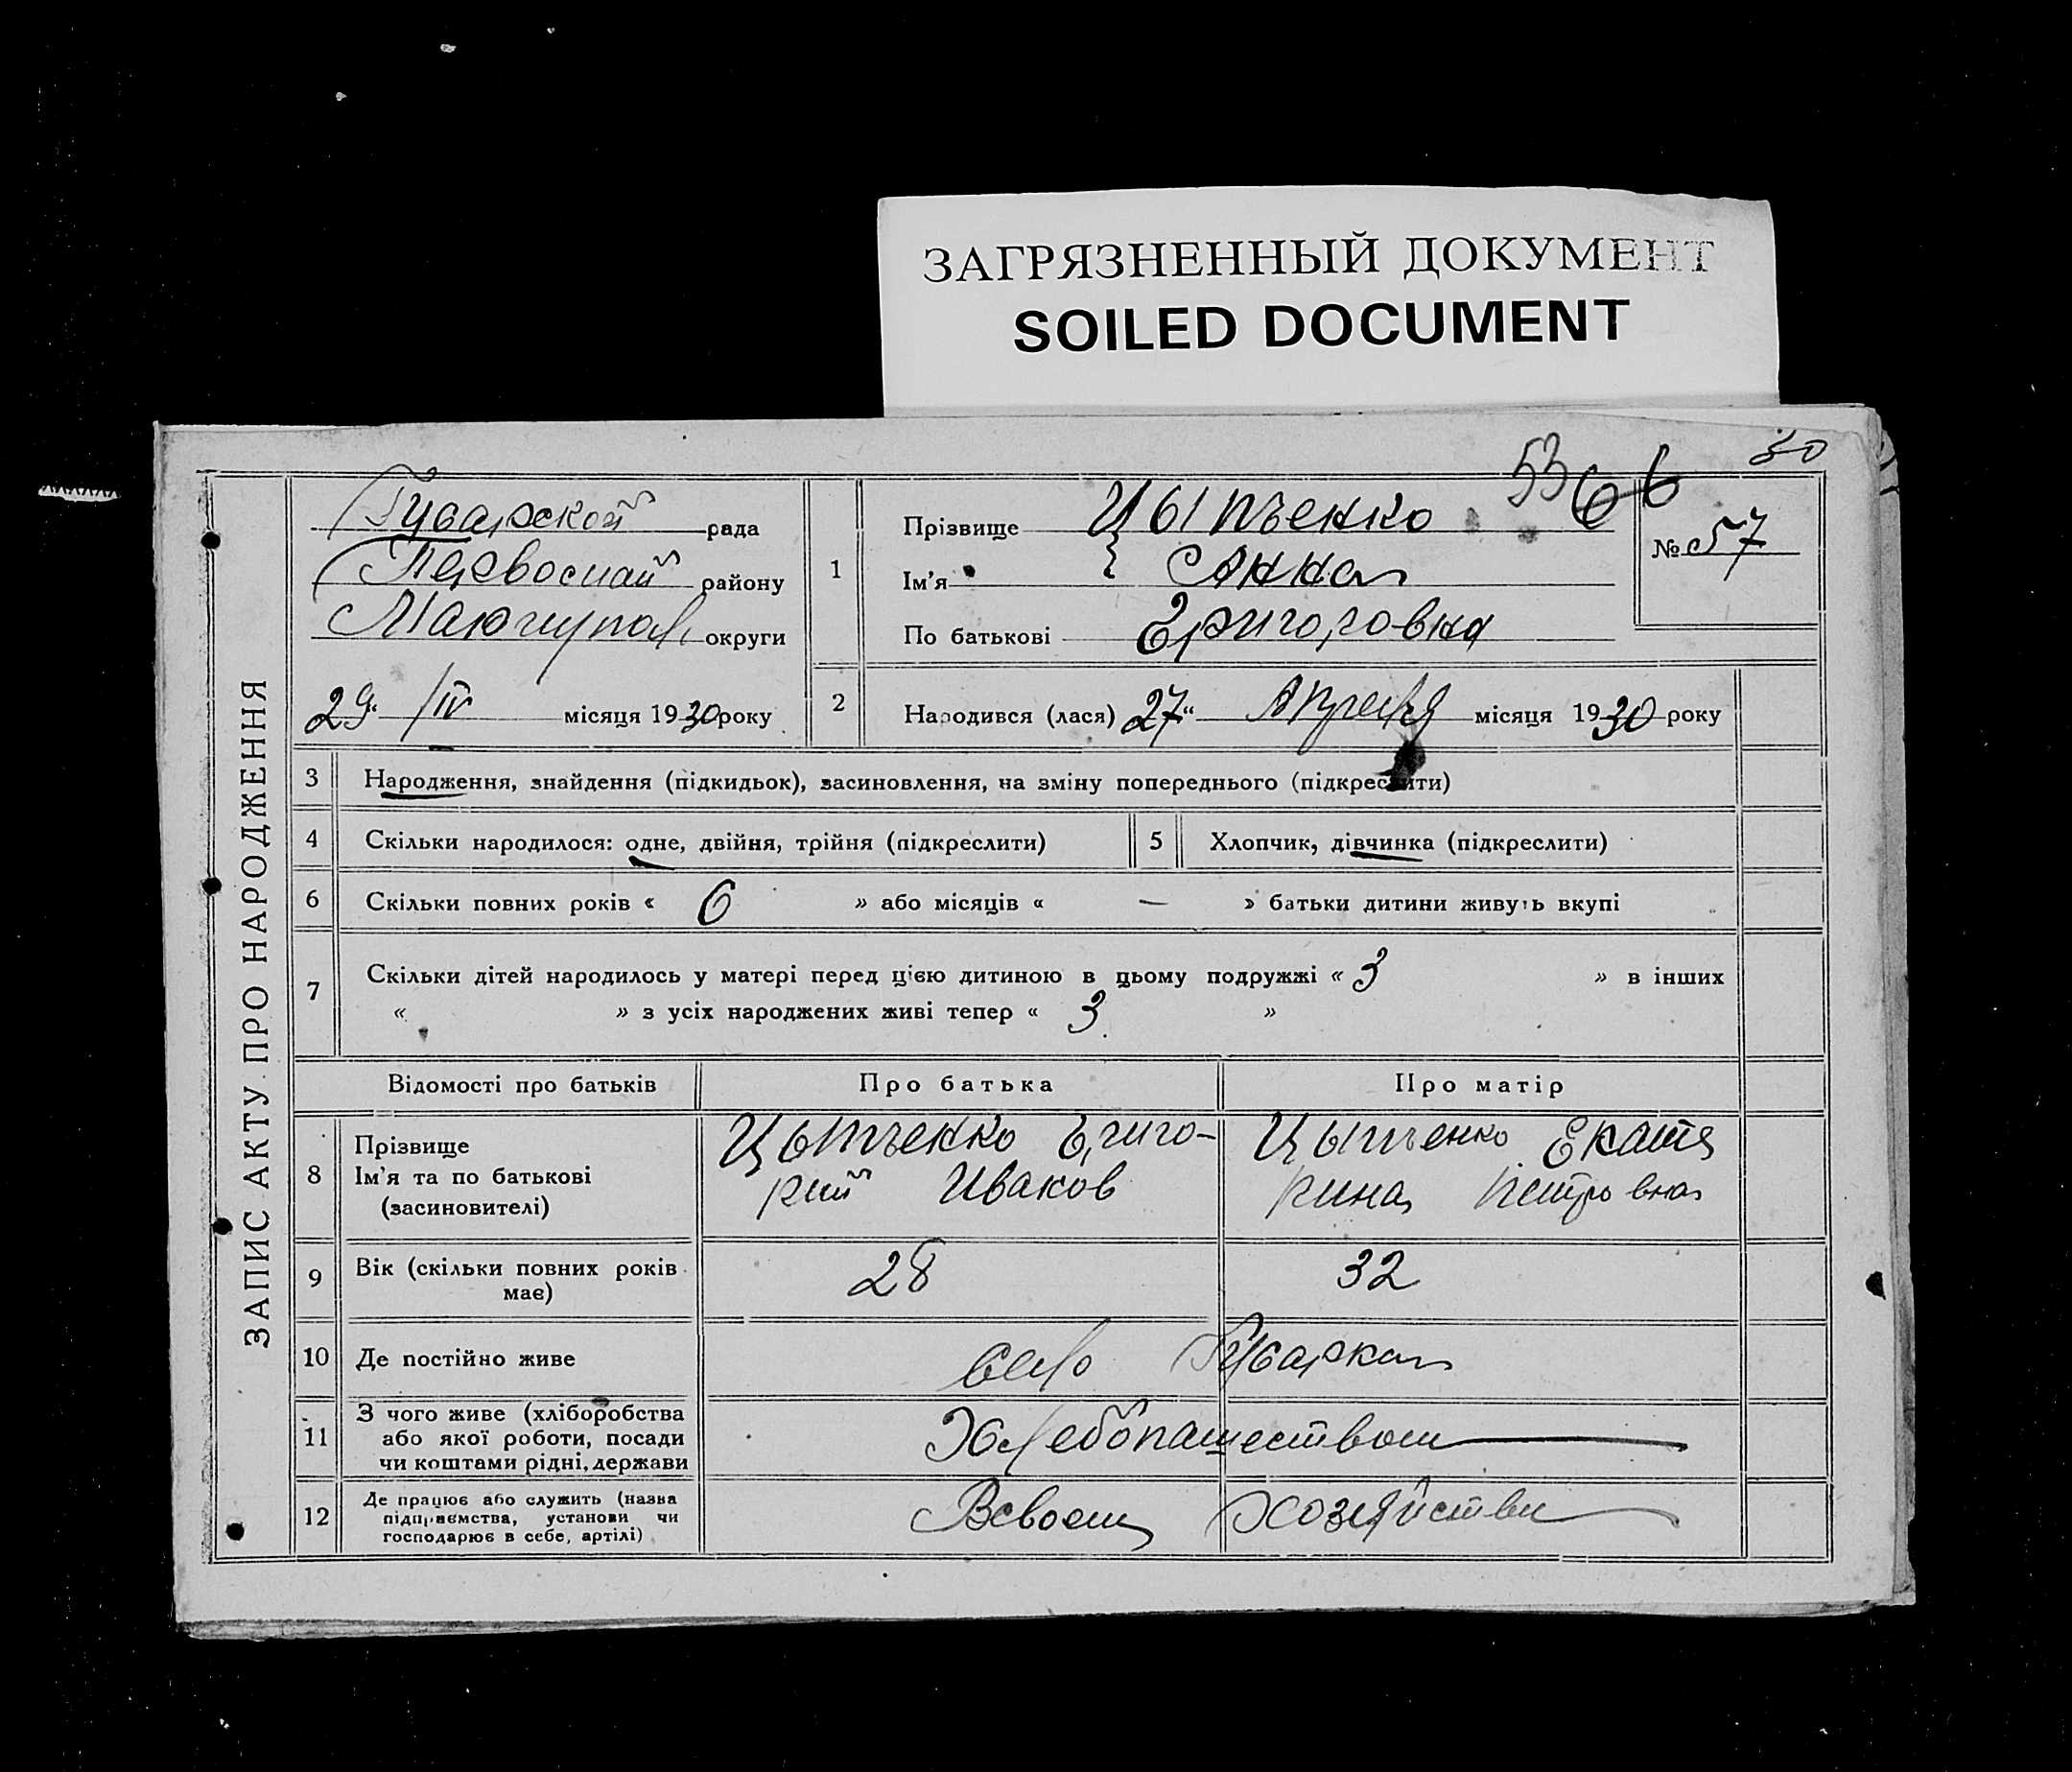 ЗАГРЯЗНЕННЫЙ ДОКУМЕНТ
SOILED DOCUMENT
30
53 66
ЗАПИС АКТУ ПРО НАРОДЖЕННЯ
рада
району
округи
29 " IV місяця 1930 року
1
Прізвище Цыпченко
Ім'я Анна
По батькові Григоровна
№ 57
2
Народився (лася) 27 " Апреля місяця 1930 року
3 Народження, знайдення (підкидьок), засиновлення, на зміну попереднього (підкреслити)
4 Скільки народилося: одне, двійня, трійня (підкреслити)
5 Хлопчик, дівчинка (підкреслити)
6 Скільки повних років « 6 » або місяців « — » батьки дитини живуть вкупі
7 Скільки дітей народилось у матері перед цією дитиною в цьому подружжі « 3 » в інших
« » з усіх народжених живі тепер « 3 »
Відомості про батьків Про батька Про матір
8 Прізвище
Ім'я та по батькові
(засиновителі)
Цыпченко Григо-
рий Иванов
Цыпченко Екате
рина Петровна
9 Вік (скільки повних років
має)
28 32
10 Де постійно живе
село
11 З чого живе (хліборобства
або якої роботи, посади
чи коштами рідні, держави
Хлебопашеством
12 Де працює або служить (назва
підприємства, установи чи
господарює в себе, артілі)
В своем хозяйстве